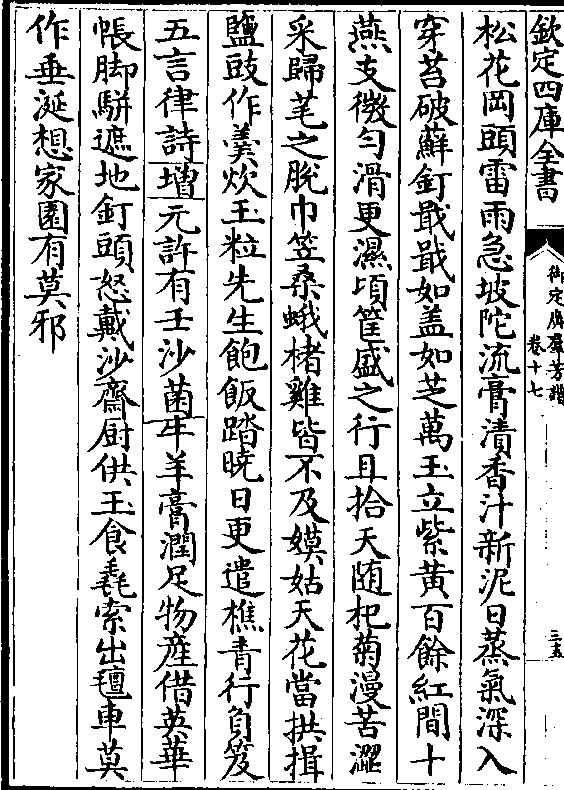 欽定四庫全書
御定廣羣芳譜
卷十七
三五
松花岡頭雷雨急坡陀流膏漬香汁新泥日蒸氣深入
穿苔破蘚釘戢戢如盖如芝萬玉立紫黄百餘紅間十
燕支微勻滑更濕頃筐盛之行且拾天随杞菊漫苦澀
采歸芼之脫巾笠桑蛾楮雞皆不及嫫姑天花當拱揖
鹽豉作羹炊玉粒先生飽飯踏曉日更遣樵青行負笈
五言律詩增元許有壬沙菌牛羊膏潤足物産借英華
帳脚駢遮地釘頭怒戴沙齋厨供玉食毳索出氊車莫
作垂涎想家園有莫邪